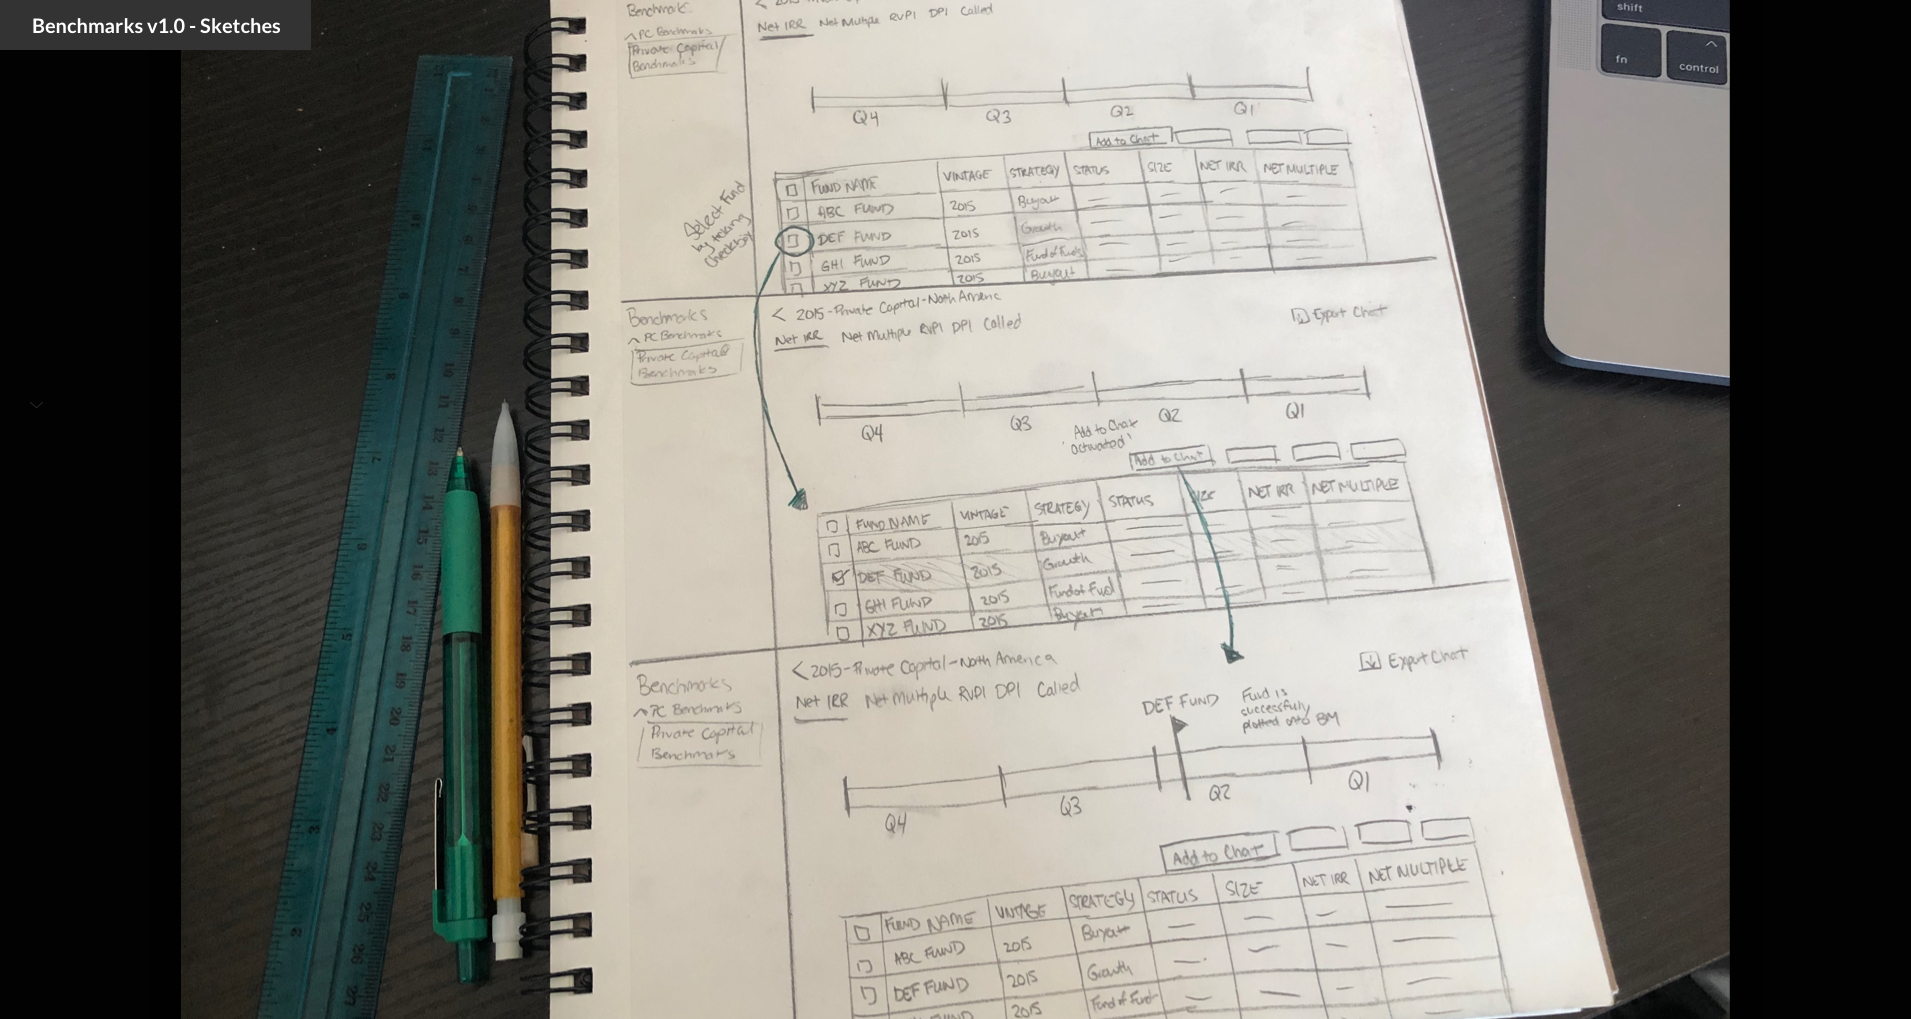 Benchmarks v1.0 - Sketches
shift
fn
control
Benchmark
^ PC Benchmarks
Private Capital
Benchmarks
Net IRR Net Multiple RVPI DPI Called
Q4 Q3 Q2 Q1
Add to Chart
FUND NAME VINTAGE STRATEGY STATUS SIZE NET IRR NET MULTIPLE
ABC FUND 2015 Buyout
DEF FUND 2015 Growth
GHI FUND 2015 Fund of Funds
XYZ FUND 2015 Buyout
Select Fund
by
Checkbox
Benchmarks
^ PC Benchmarks
Private Capital
Benchmarks
< 2015-Private Capital-North America
Net IRR Net Multiple RVPI DPI Called
Export Chart
Q4 Q3 Q2 Q1
Add to Chart
'activated'
Add to Chart
FUND NAME VINTAGE STRATEGY STATUS SIZE NET IRR NET MULTIPLE
ABC FUND 2015 Buyout
DEF FUND 2015 Growth
GHI FUND 2015 Fund of Fund
XYZ FUND 2015 Buyout
Benchmarks
^ PC Benchmarks
Private Capital
Benchmarks
< 2015-Private Capital-North America
Net IRR Net Multiple RVPI DPI Called
Export Chart
DEF FUND
Fund is
successfully
plotted onto BM
Q4 Q3 Q2 Q1
Add to Chart
FUND NAME VINTAGE STRATEGY STATUS SIZE NET IRR NET MULTIPLE
ABC FUND 2015 Buyout
DEF FUND 2015 Growth
FUND 2015 Fund of Funds